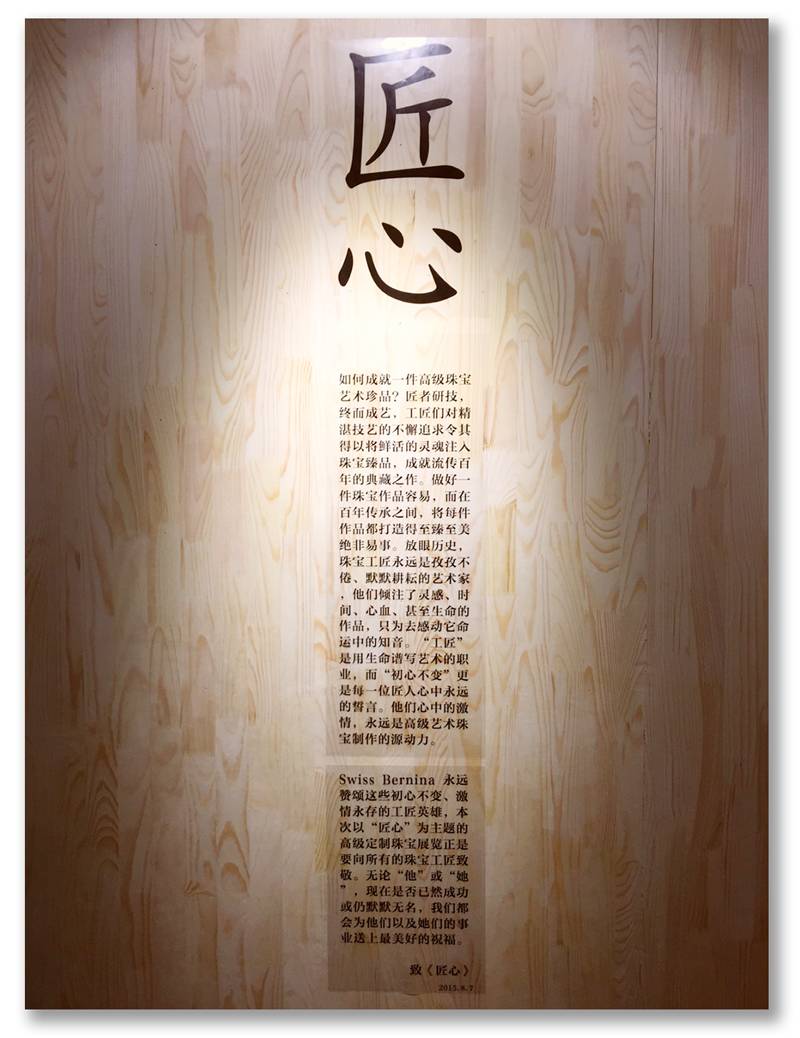 匠
心
如何成就一件高级珠宝
艺术珍品？匠者研技，
终而成艺，工匠们对精
湛技艺的不懈追求令其
得以将鲜活的灵魂注入
珠宝臻品，成就流传百
年的典藏之作。做好一
件珠宝作品容易，而在
百年传承之间，将每件
作品都打造得至臻至美
绝非易事。放眼历史，
珠宝工匠永远是孜孜不
倦、默默耕耘的艺术家
，他们倾注了灵感、时
间、心血、甚至生命的
作品，只为去感动它命
运中的知音。“工匠”
是用生命谱写艺术的职
业，而“初心不变”更
是每一位匠人心中永远
的誓言。他们心中的激
情，永远是高级艺术珠
宝制作的源动力。
Swiss Bernina 永远
赞颂这些初心不变、激
情永存的工匠英雄，本
次以“匠心”为主题的
高级定制珠宝展览正是
要向所有的珠宝工匠致
敬。无论“他”或“她
”，现在是否已然成功
或仍默默无名，我们都
会为他们以及她们的事
业送上最美好的祝福。
致《匠心》
2015.8.7